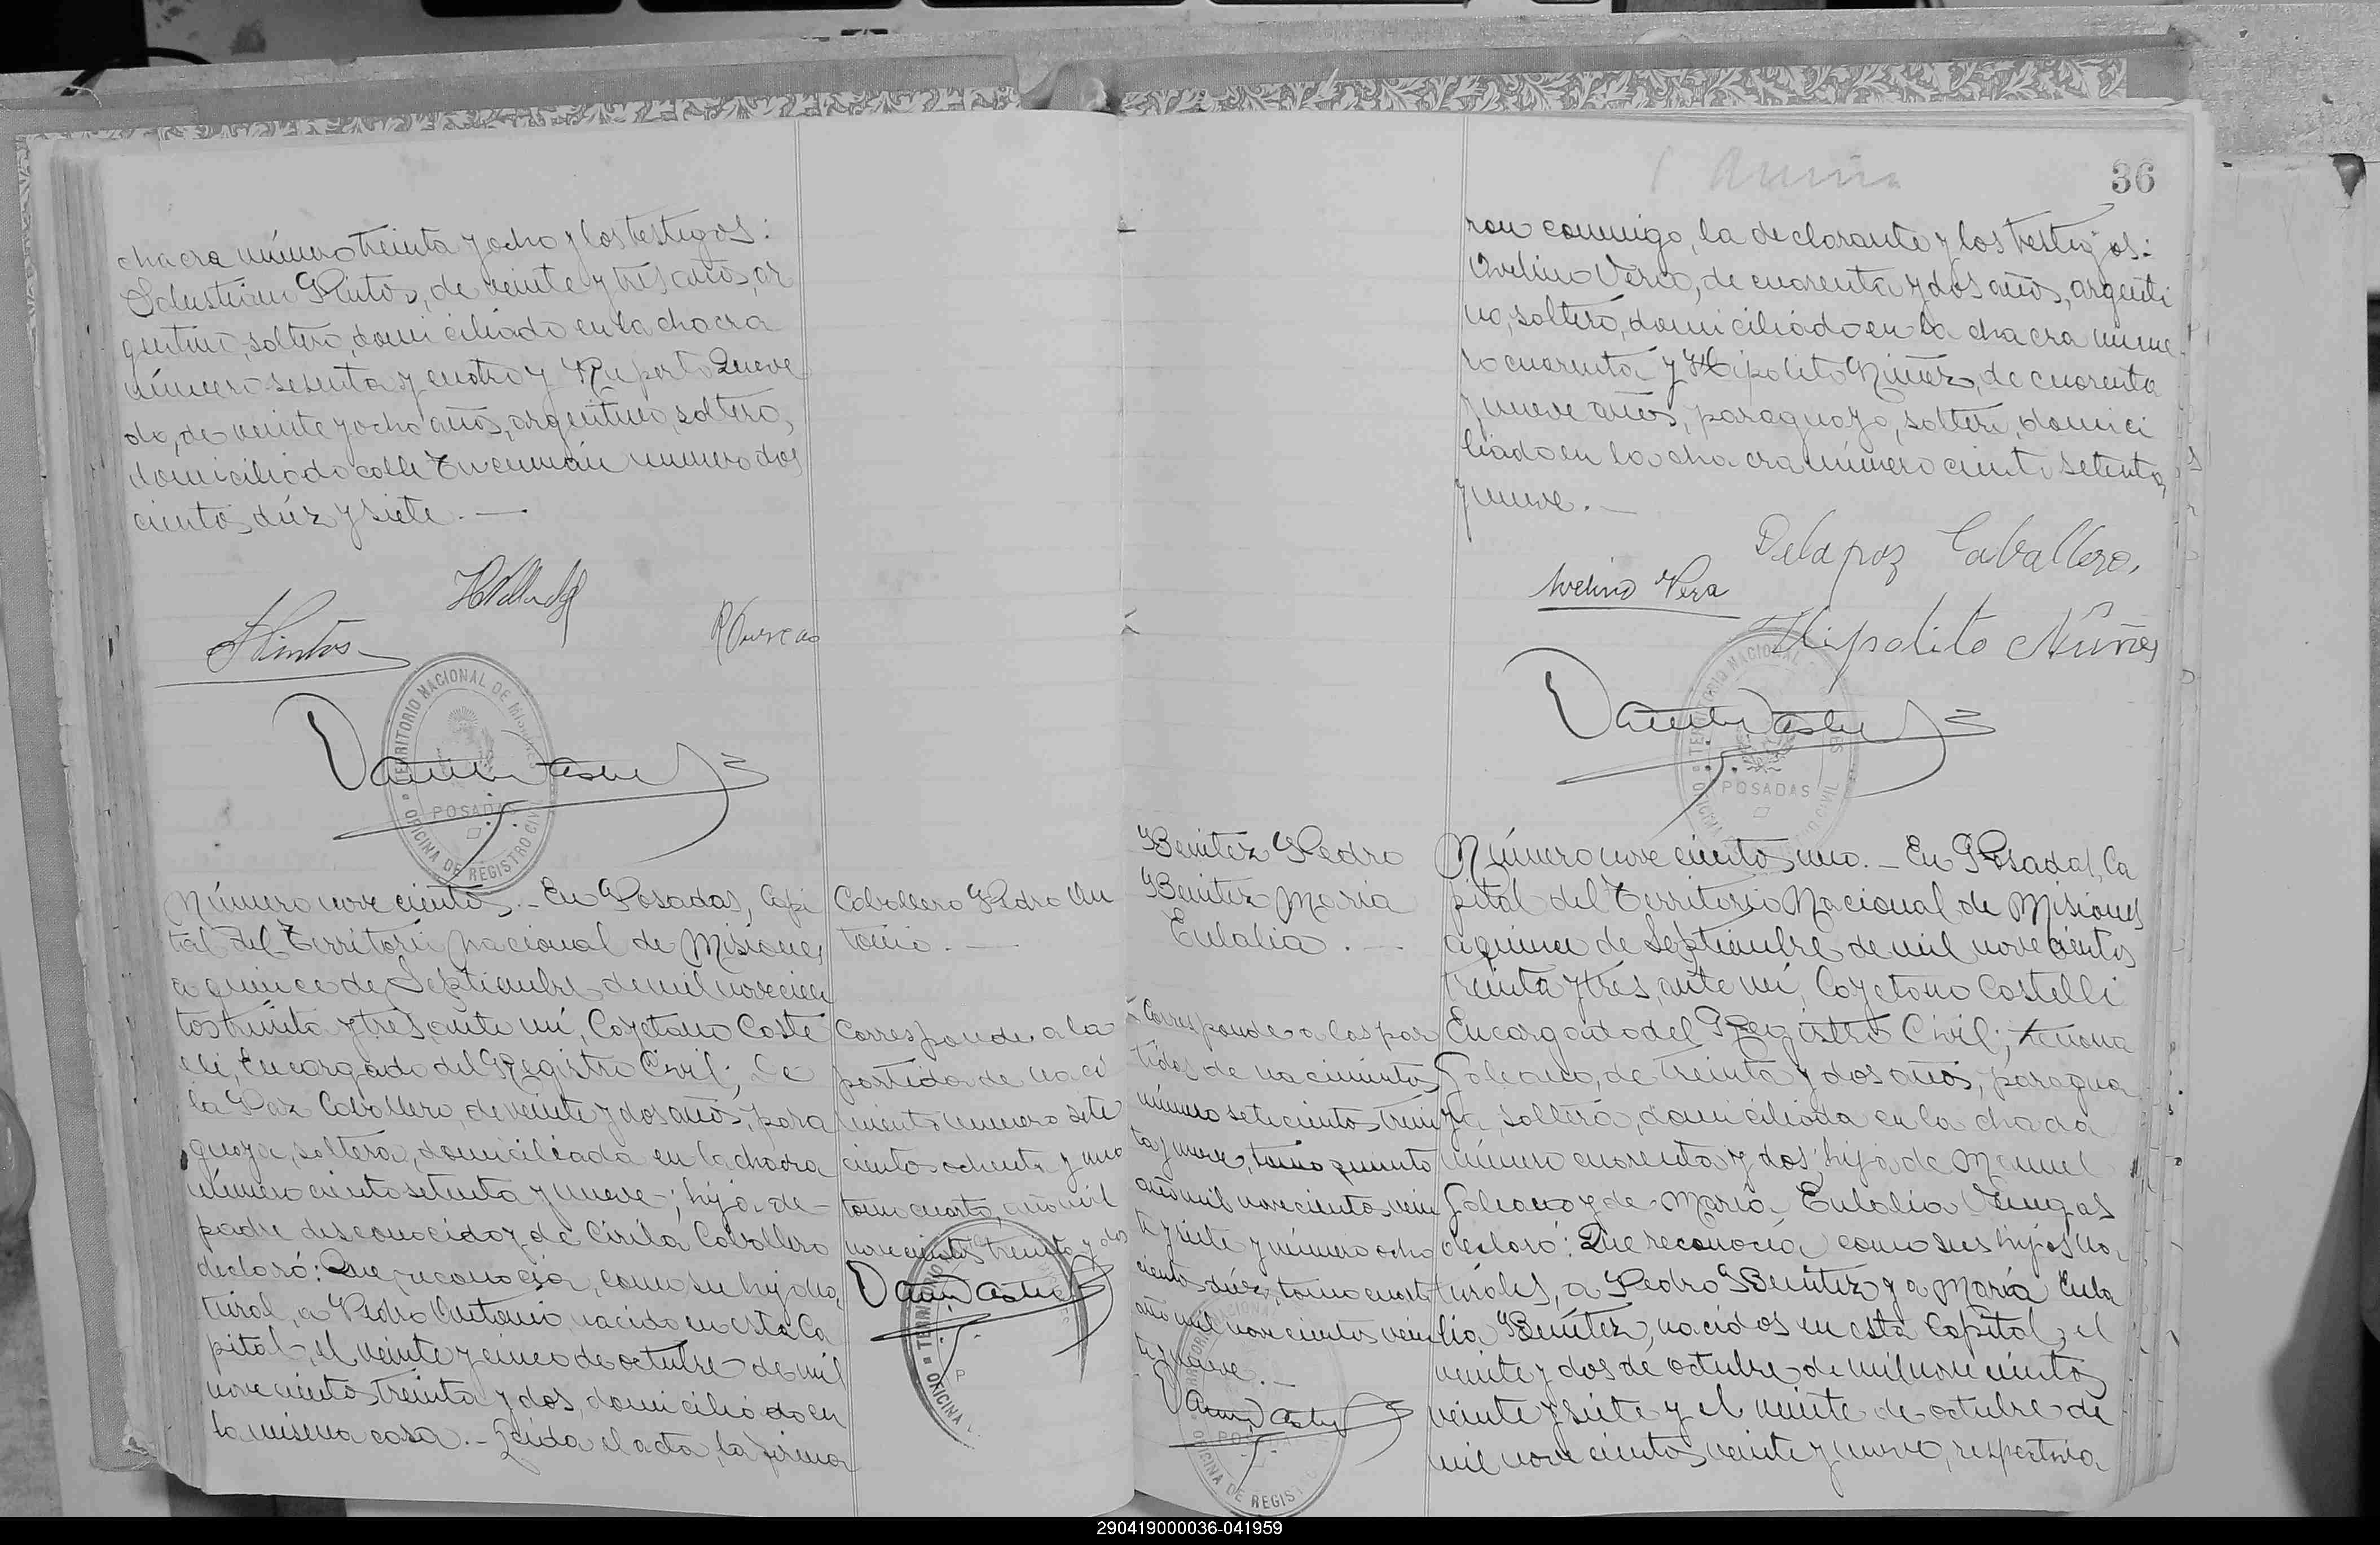 chacra número treinta y ocho y los testigos:
Sebastian Pintos, de veinte y tres años, ar
gentino, soltero, domiciliado en la chacra
número sesenta y cuatro y Ruperto Queve
do, de veinte y ocho años, argentino, soltero,
domiciliado calle Tucumán número dos
cientos diez y siete.—
S Pintos
R Quevedo
TERRITORIO NACIONAL DE MISIONES
POSADAS
OFICINA DE REGISTRO CIVIL
Número novecientos.- En Posadas, Capi
tal del Territorio Nacional de Misiones
a quince de Septiembre de mil novecien
tos treinta y tres, ante mí, Cayetano Caste
lli, Encargado del Registro Civil; De
la Paz Caballero, de veinte y dos años, para
guaya, soltera, domiciliada en la chacra
número ciento setenta y nueve; hija de
padre desconocido y de Cirila Caballero
declaró: Que reconocía, como su hijo na
tural, a Pedro Antonio, nacido en esta Ca
pital, el veinte y cinco de octubre de mil
novecientos treinta y dos, domiciliado en
la misma casa.- Leida el acta, la firma
Caballero Pedro An
tonio.—
Corresponde a la
partida de naci
miento número sete
cientos ochenta y uno
tomo cuarto, año mil
novecientos treinta y dos
36
ron conmigo, la declarante y los testigos:
Avelino Vera, de cuarenta y dos años, argenti
no, soltero, domiciliado en la chacra núme
ro cuarenta y Hipolito Núñez, de cuarenta
y nueve años, paraguayo, soltero, domici
liado en la chacra número ciento setenta
y nueve.—
Delapaz Caballero,
Avelino Vera
Hipolito Núñes
POSADAS
Benitez Pedro
Benitez Maria
Eulalia.—
Corresponde a las par
tidas de nacimientos
número setecientos trein
ta y nueve, tomo quinto
año mil novecientos vein
te y siete y número ocho
cientos diez, tomo cuarto
año mil novecientos vein
te y nueve.—
Número novecientos uno.- En Posadas, Ca
pital del Territorio Nacional de Misiones
a quince de Septiembre de mil novecientos
treinta y tres, ante mí, Cayetano Castelli
Encargado del Registro Civil;
Galeano, de treinta y dos años, paragua
ya, soltera, domiciliada en la chacra
número cuarenta y dos; hija de Manuel
Galeano y de María Eulalia
declaró: Que reconocía como sus hijos na
turales, a Pedro Benítez y a María Eula
lia Benítez, nacidos en esta Capital, el
veinte y dos de octubre de mil novecientos
veinte y siete y el veinte de octubre de
mil novecientos veinte y nueve, respectiva
290419000036-041959